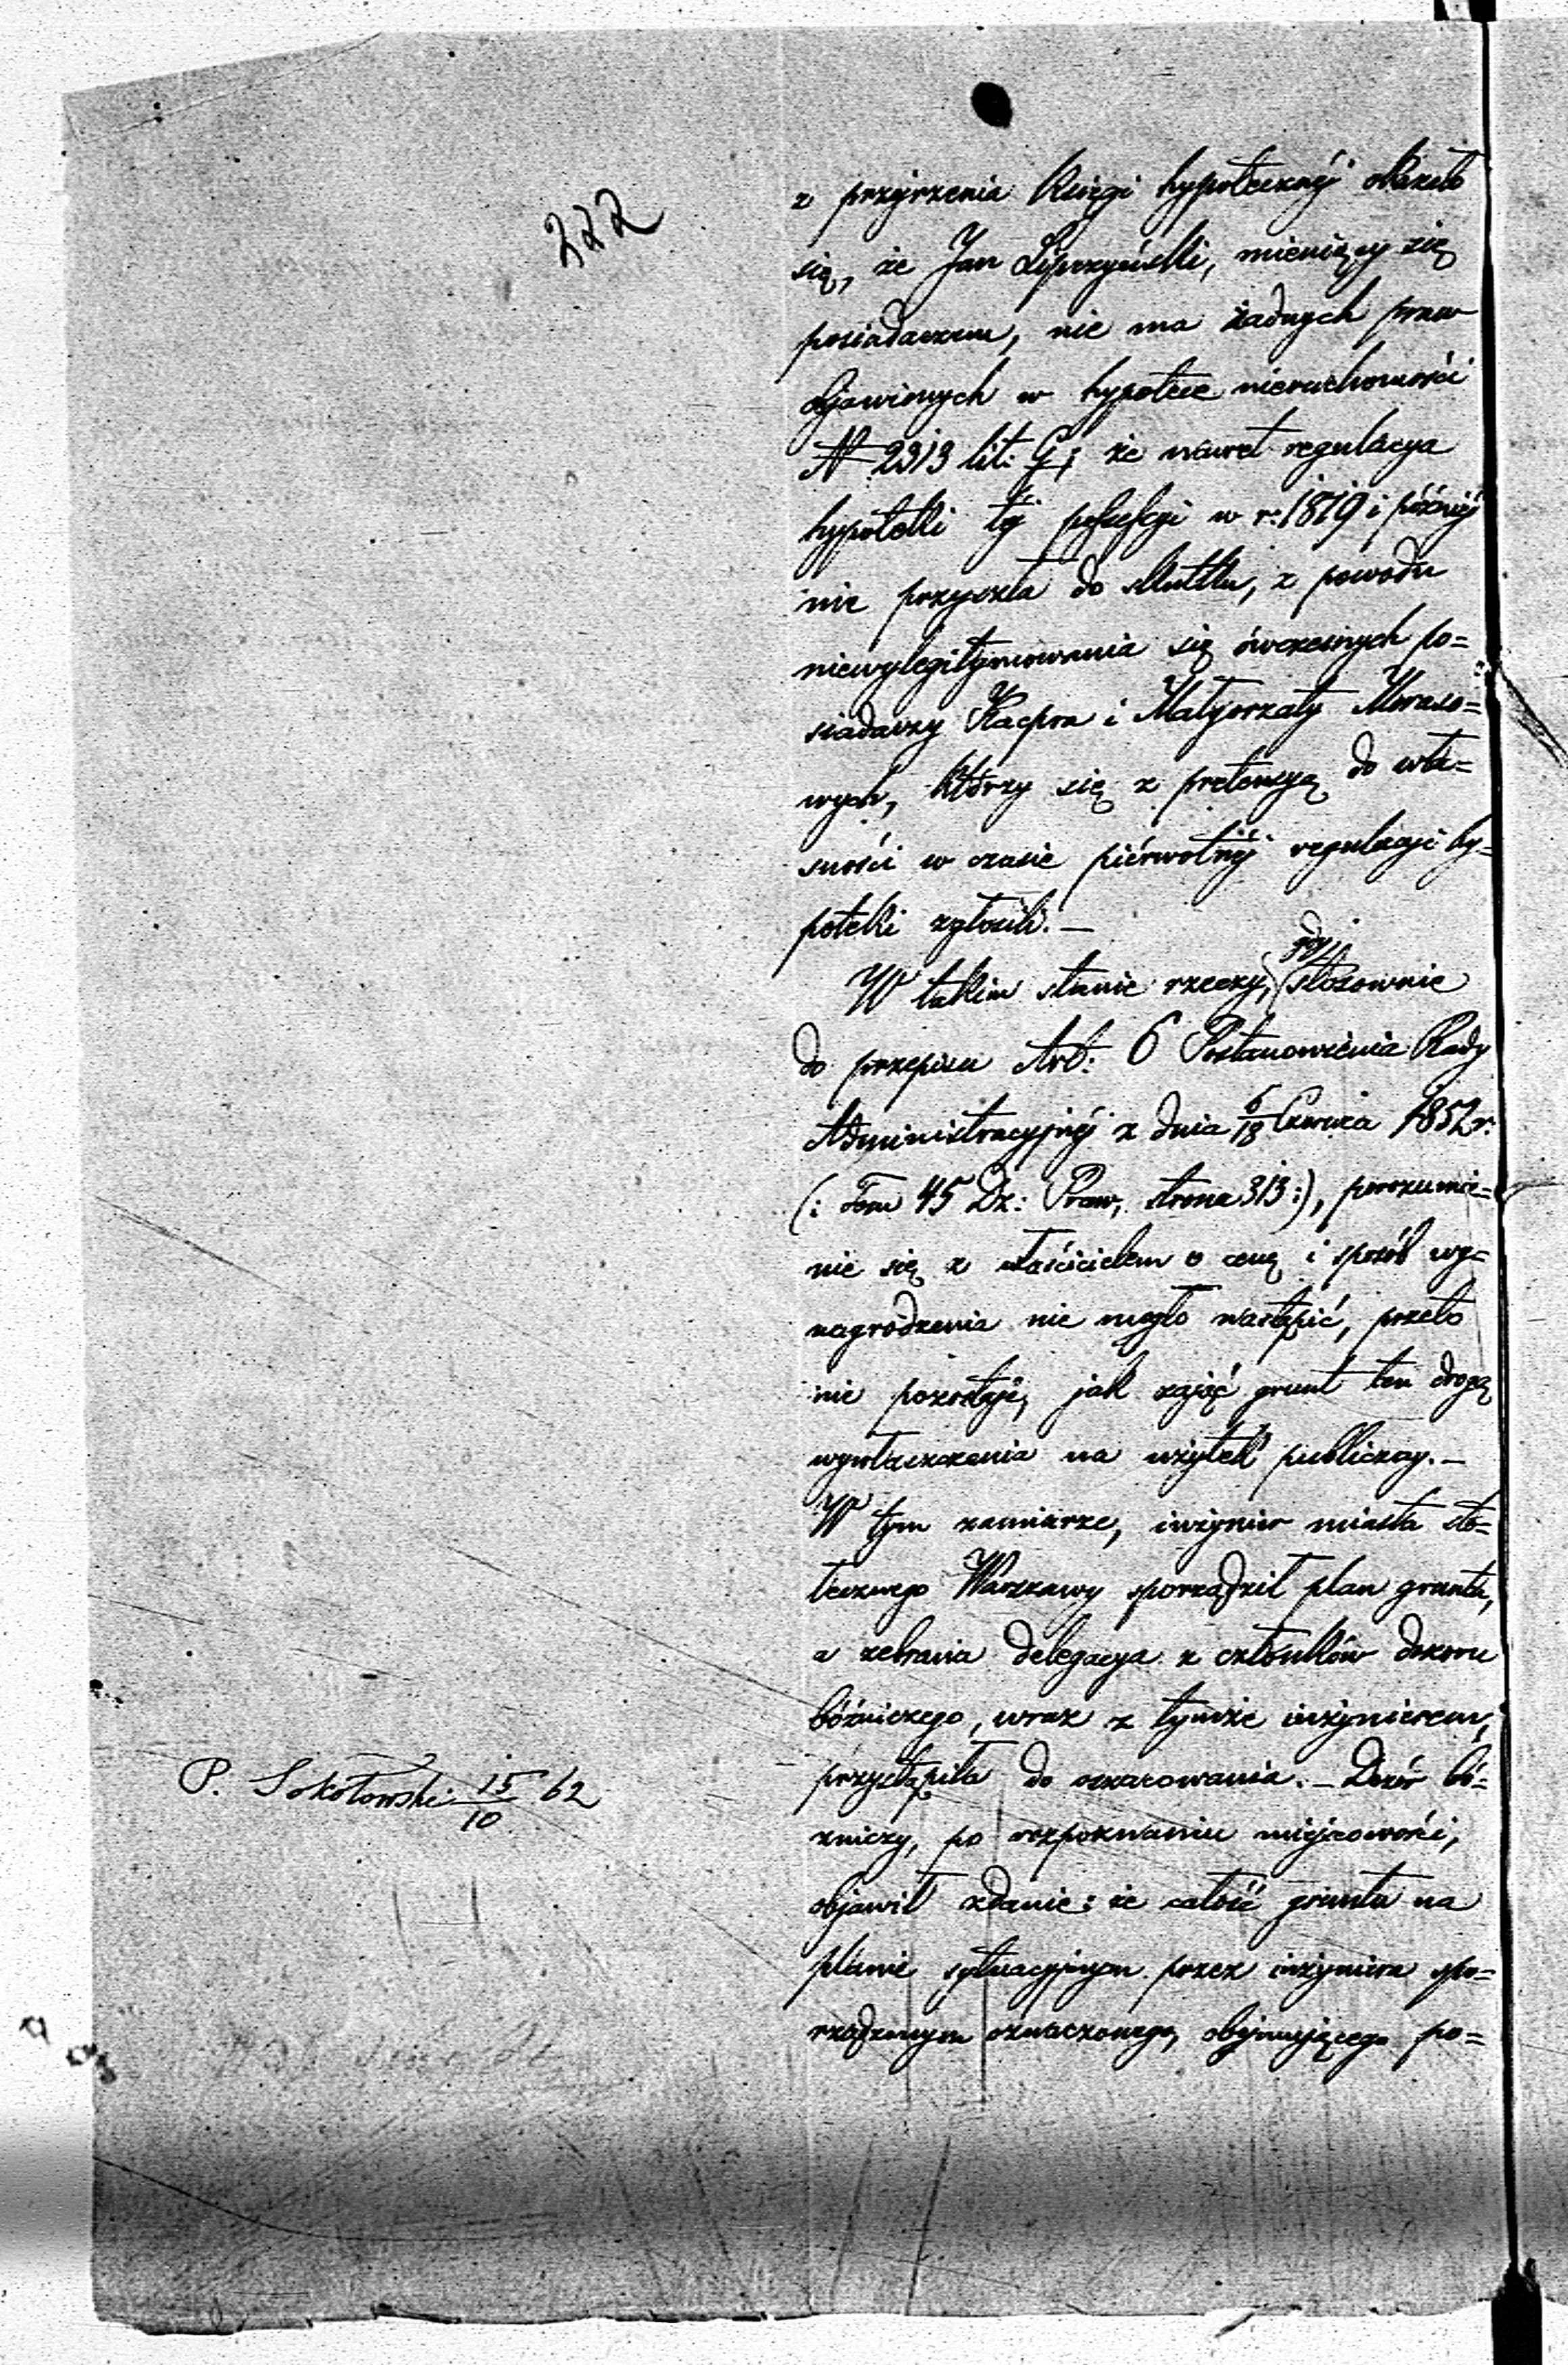 222
z przejrzenia Księgi hypotecznéj okazało
się, że Jan Lipczyński, mieniący się
posiadaczem, nie ma żadnych praw
objawionych w hypotece nieruchomości
N 2313 lit: G; że nawet regulacya
hypoteki téj possessyi w r: 1819 i późniéj
nie przyszła do skutku, z powodu
niewylegitymowania się ówczesnych po=
siadaczy Kacpra i Małgorzaty Moraso=
wych, którzy się z pretensyą do wła=
sności w czasie piérwotnéj regulacji hy=
poteki zgłosili. —
W takim stanie rzeczy, gdy stosownie
do przepisu Art: 6 Postanowienia Rady
Administracyjnéj z dnia 6/18 Czerwca 1852 r.
(: Tom 45 Dz: Praw, strona 313 :), porozumie=
nie się z właścicielem o cenę i sposób wy=
nagrodzenia nie mogło nastąpić, przeto
nie pozostaje, jak zająć grunt ten drogą
wywłaszczenia na użytek publiczny. —
W tym zamiarze, inżynier miasta sto=
łecznego Warszawy sporządził plan gruntu,
a zebrana delegacya z członków dozoru
bóźniczego, wraz z tymże inżynierem,
przystąpiła do oszacowania. — Dozór bó=
źniczy, po rozpoznaniu miejscowości,
objawił zdanie: że całość gruntu na
planie sytuacyjnym przez inżyniera spo=
rządzonym oznaczonego, obejmującego po=
P. Sokołowski 15/10 62